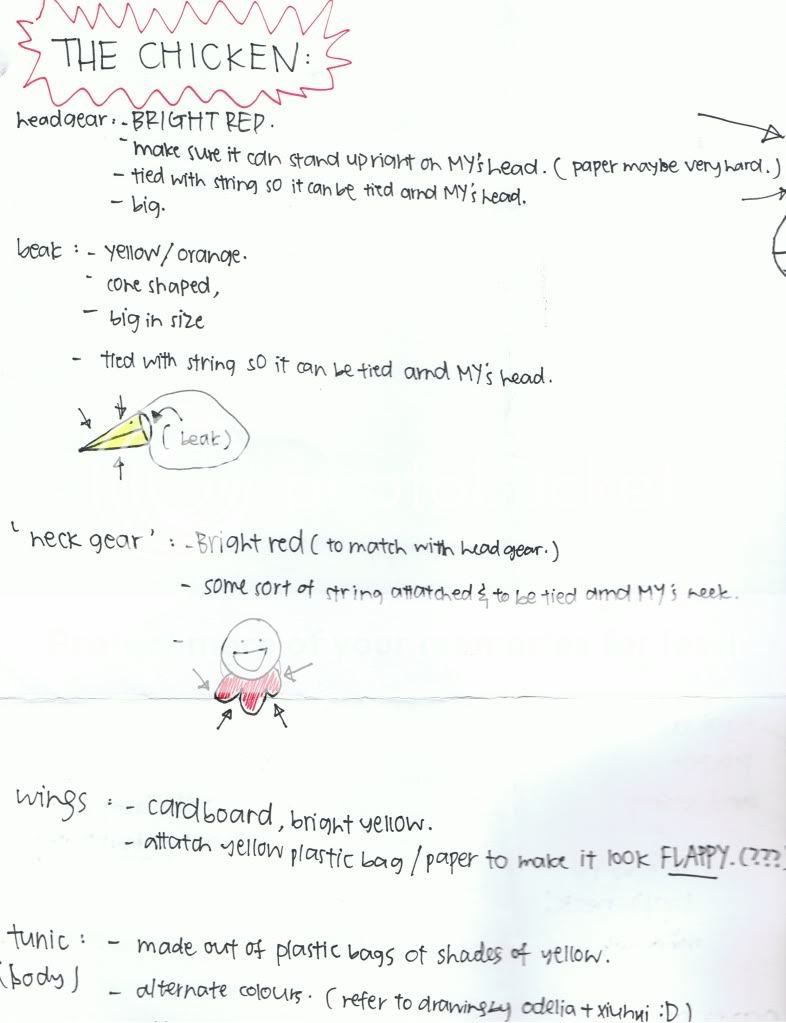 THE CHICKEN:
headgear: - BRIGHT RED.
- make sure it can stand upright on MY's head. ( paper maybe very hard.)
- tied with string so it can be tied arnd MY's head.
- big.
beak : - yellow/orange.
- cone shaped,
- big in size
- tied with string so it can be tied arnd MY's head.
(beak)
'neck gear' : - Bright red ( to match with headgear.)
- some sort of string attatched & to be tied arnd MY's neck.
-
wings : - cardboard, bright yellow.
- attatch yellow plastic bag / paper to make it look FLAPPY. (???)
tunic : - made out of plastic bags of shades of yellow.
(body)
- alternate colours. ( refer to drawings by odelia + xiuhui :D )
Protect more of your memories for less!